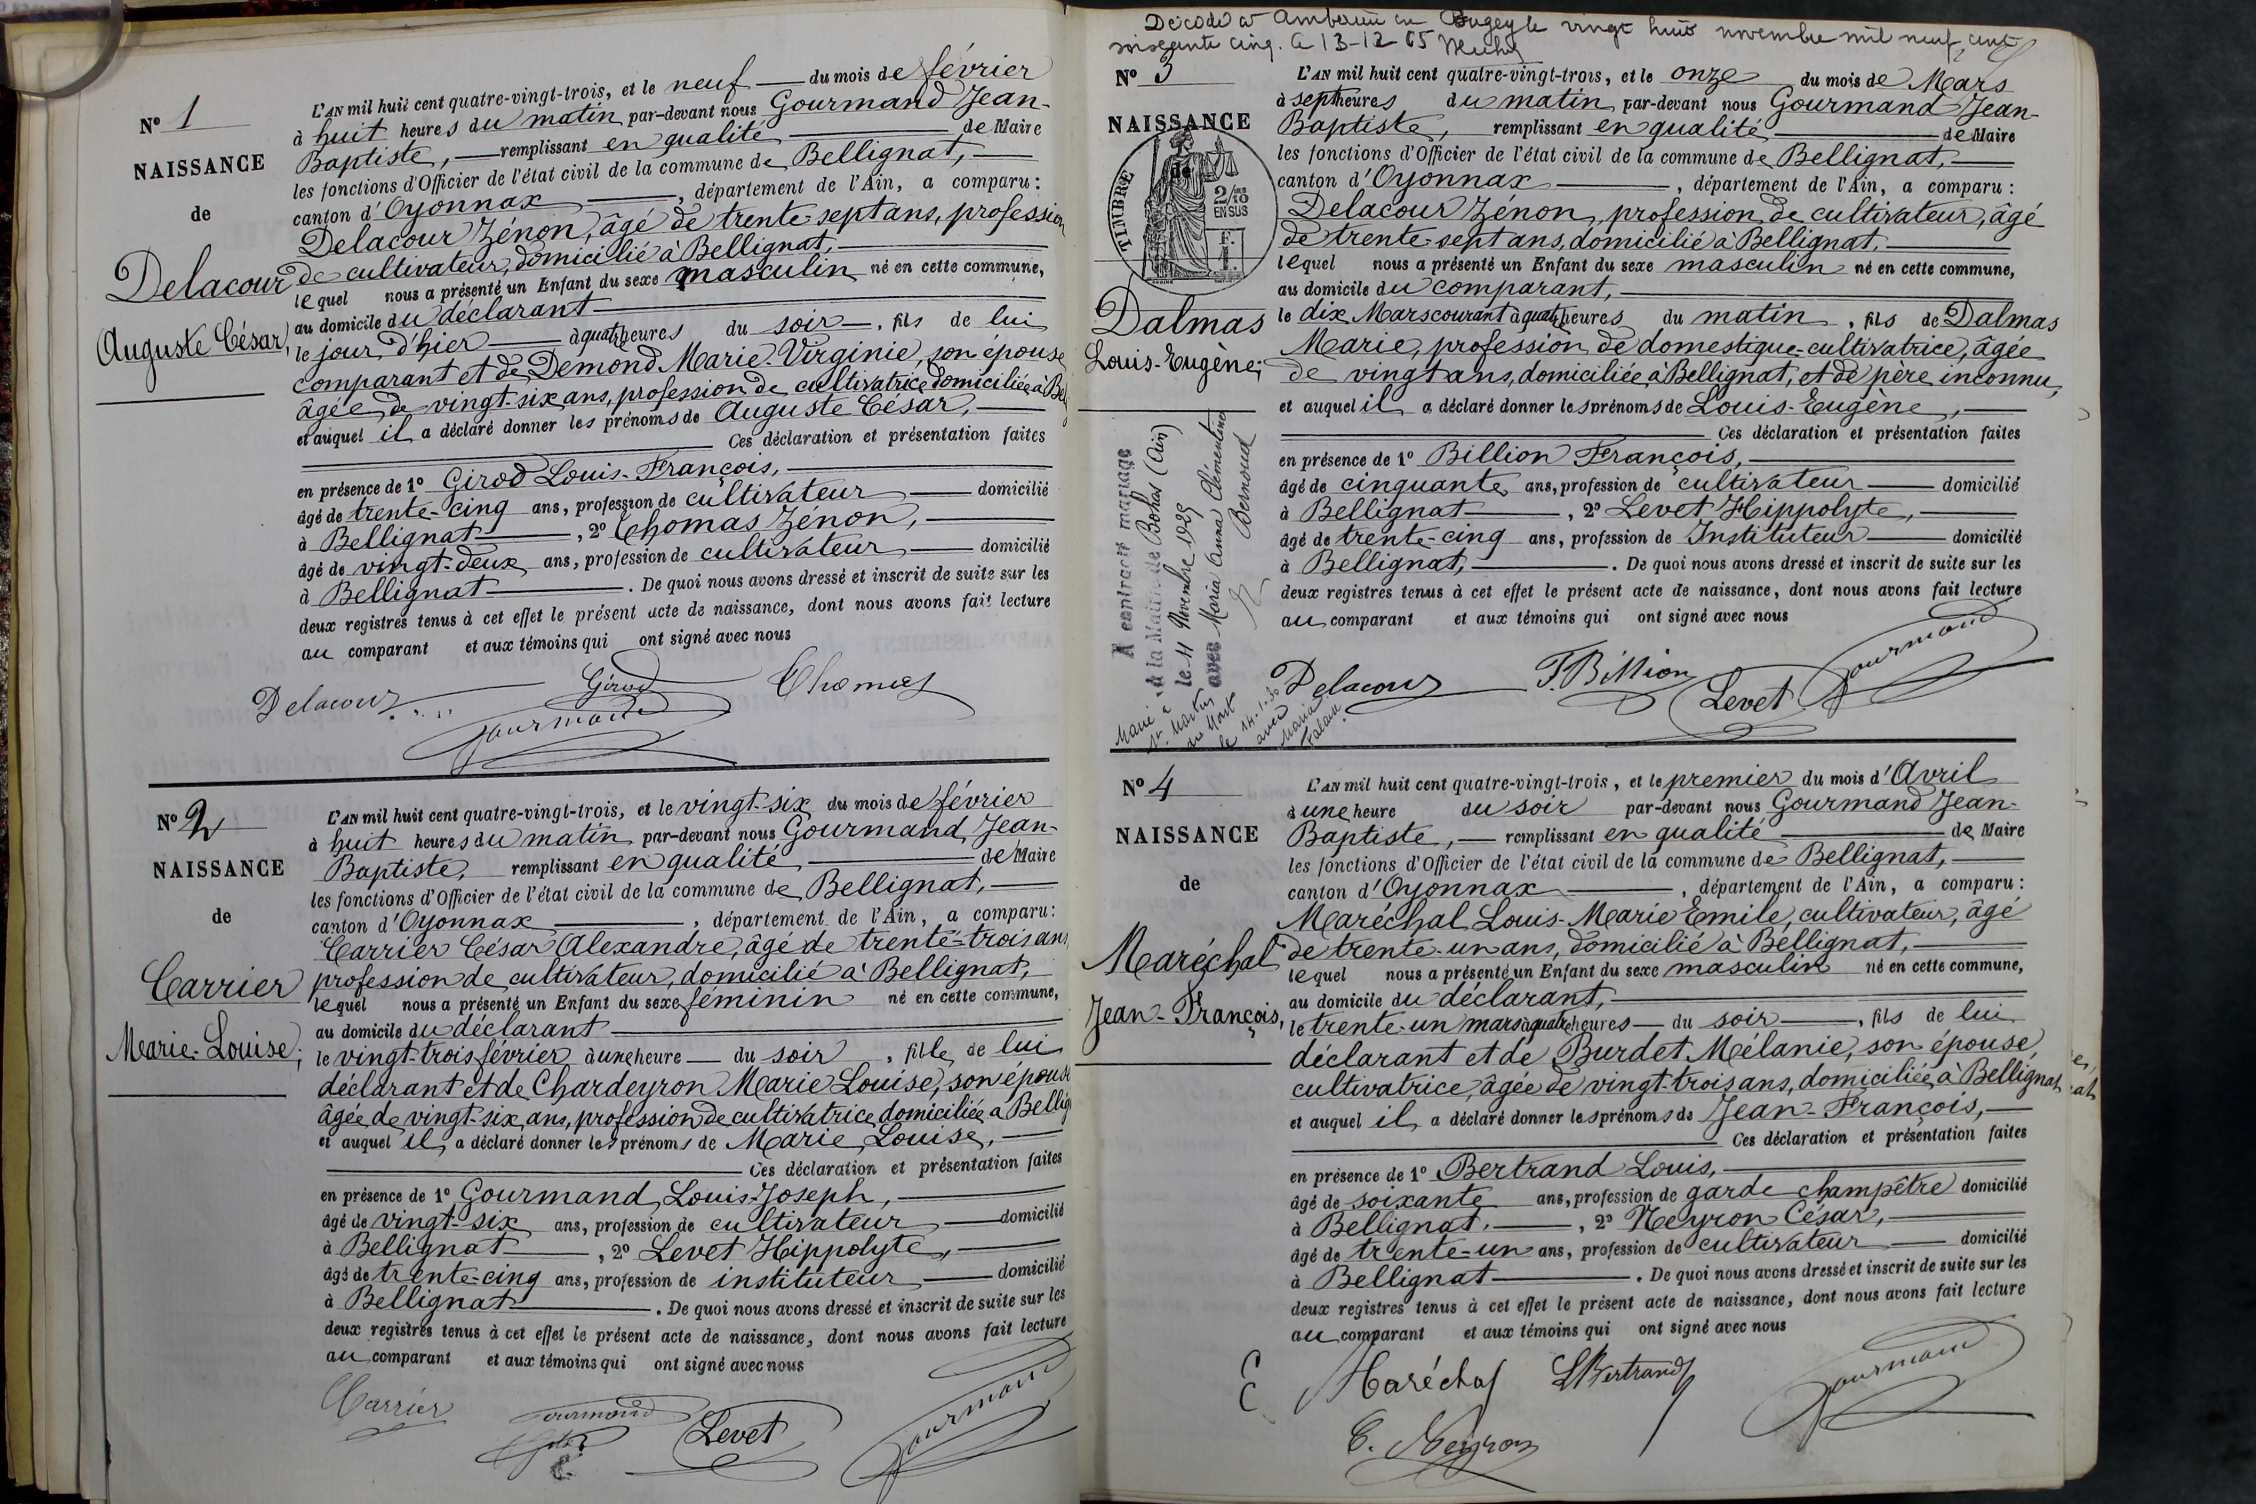 N° 1
NAISSANCE
de
Delacour
Auguste César,
L'AN mil huit cent quatre-vingt-trois, et le neuf du mois de février
à huit heures du matin par-devant nous Gourmand Jean-
Baptiste, remplissant en qualité de Maire
les fonctions d'Officier de l'état civil de la commune de Bellignat,
canton d'Oyonnax, département de l'Ain, a comparu :
Delacour Zénon, âgé de trente-sept ans, profession
de cultivateur, domicilié à Bellignat,
lequel nous a présenté un Enfant du sexe masculin né en cette commune,
au domicile du déclarant
le jour d'hier à quatre heures du soir, fils de lui
comparant et de Demond Marie-Virginie, son épouse
âgée de vingt-six ans, profession de cultivatrice domiciliée à Bel
et auquel il a déclaré donner les prénoms de Auguste César,
Ces déclaration et présentation faites
en présence de 1° Girod Louis-François,
âgé de trente-cinq ans, profession de cultivateur domicilié
à Bellignat, 2° Thomas Zénon,
âgé de vingt-deux ans, profession de cultivateur domicilié
à Bellignat. De quoi nous avons dressé et inscrit de suite sur les
deux registres tenus à cet effet le présent acte de naissance, dont nous avons fait lecture
au comparant et aux témoins qui ont signé avec nous
Delacour Girod Thomas
Gourmand
N° 2
NAISSANCE
de
Carrier
Marie-Louise;
L'AN mil huit cent quatre-vingt-trois, et le vingt-six du mois de février
à huit heures du matin par-devant nous Gourmand Jean-
Baptiste, remplissant en qualité de Maire
les fonctions d'Officier de l'état civil de la commune de Bellignat,
canton d'Oyonnax, département de l'Ain, a comparu :
Carrier César Alexandre, âgé de trente-trois ans,
profession de cultivateur, domicilié à Bellignat,
lequel nous a présenté un Enfant du sexe féminin né en cette commune,
au domicile du déclarant
le vingt-trois février à une heure du soir, fille de lui
déclarant et de Chardeyron Marie Louise, son épouse
âgée de vingt-six ans, profession de cultivatrice domiciliée à Bellig
et auquel il a déclaré donner les prénoms de Marie Louise,
Ces déclaration et présentation faites
en présence de 1° Gourmand Louis-Joseph,
âgé de vingt-six ans, profession de cultivateur domicilié
à Bellignat, 2° Levet Hippolyte,
âgé de trente-cinq ans, profession de instituteur domicilié
à Bellignat. De quoi nous avons dressé et inscrit de suite sur les
deux registres tenus à cet effet le présent acte de naissance, dont nous avons fait lecture
au comparant et aux témoins qui ont signé avec nous
Carrier Gourmand Levet Gourmand
Décédé à Ambérieu en Bugey le vingt huit novembre mil neuf cent
soixante cinq. le 13-12-65
N° 3
NAISSANCE
de
TIMBRE
2/10 EN SUS
F.
1
Dalmas
Louis-Eugène;
A contracté mariage
à la Mairie de Bohas (Ain)
le 11 Novembre 1925
avec Maria Anna Clémentine
Bernoud
Marié à
St. Martin
du Mont
le 14.1.30
avec
Maria
L'AN mil huit cent quatre-vingt-trois, et le onze du mois de Mars
à sept heures du matin par-devant nous Gourmand Jean-
Baptiste, remplissant en qualité de Maire
les fonctions d'Officier de l'état civil de la commune de Bellignat,
canton d'Oyonnax, département de l'Ain, a comparu :
Delacour Zénon, profession de cultivateur, âgé
de trente-sept ans, domicilié à Bellignat,
lequel nous a présenté un Enfant du sexe masculin né en cette commune,
au domicile du comparant,
le dix Mars courant à quatre heures du matin, fils de Dalmas
Marie, profession de domestique-cultivatrice, âgée
de vingt ans, domiciliée à Bellignat, et de père inconnu,
et auquel il a déclaré donner les prénoms de Louis-Eugène,
Ces déclaration et présentation faites
en présence de 1° Billion François,
âgé de cinquante ans, profession de cultivateur domicilié
à Bellignat, 2° Levet Hippolyte,
âgé de trente-cinq ans, profession de Instituteur domicilié
à Bellignat,. De quoi nous avons dressé et inscrit de suite sur les
deux registres tenus à cet effet le présent acte de naissance, dont nous avons fait lecture
au comparant et aux témoins qui ont signé avec nous
Delacour F. Billion Levet Gourmand
N° 4
NAISSANCE
de
Maréchal
Jean-François,
L'AN mil huit cent quatre-vingt-trois, et le premier du mois d'Avril
à une heure du soir par-devant nous Gourmand Jean-
Baptiste, remplissant en qualité de Maire
les fonctions d'Officier de l'état civil de la commune de Bellignat,
canton d'Oyonnax, département de l'Ain, a comparu :
Maréchal Louis-Marie Emile, cultivateur, âgé
de trente-un ans, domicilié à Bellignat,
lequel nous a présenté un Enfant du sexe masculin né en cette commune,
au domicile du déclarant,
le trente-un mars à quatre heures du soir, fils de lui
déclarant et de Burdet Mélanie, son épouse,
cultivatrice, âgée de vingt-trois ans, domiciliée à Bellignat,
et auquel il a déclaré donner les prénoms de Jean-François,
Ces déclaration et présentation faites
en présence de 1° Bertrand Louis,
âgé de soixante ans, profession de garde champêtre domicilié
à Bellignat, 2° Neyron César,
âgé de trente-un ans, profession de cultivateur domicilié
à Bellignat. De quoi nous avons dressé et inscrit de suite sur les
deux registres tenus à cet effet le présent acte de naissance, dont nous avons fait lecture
au comparant et aux témoins qui ont signé avec nous
E Maréchal L Bertrand Gourmand
C. Neyron